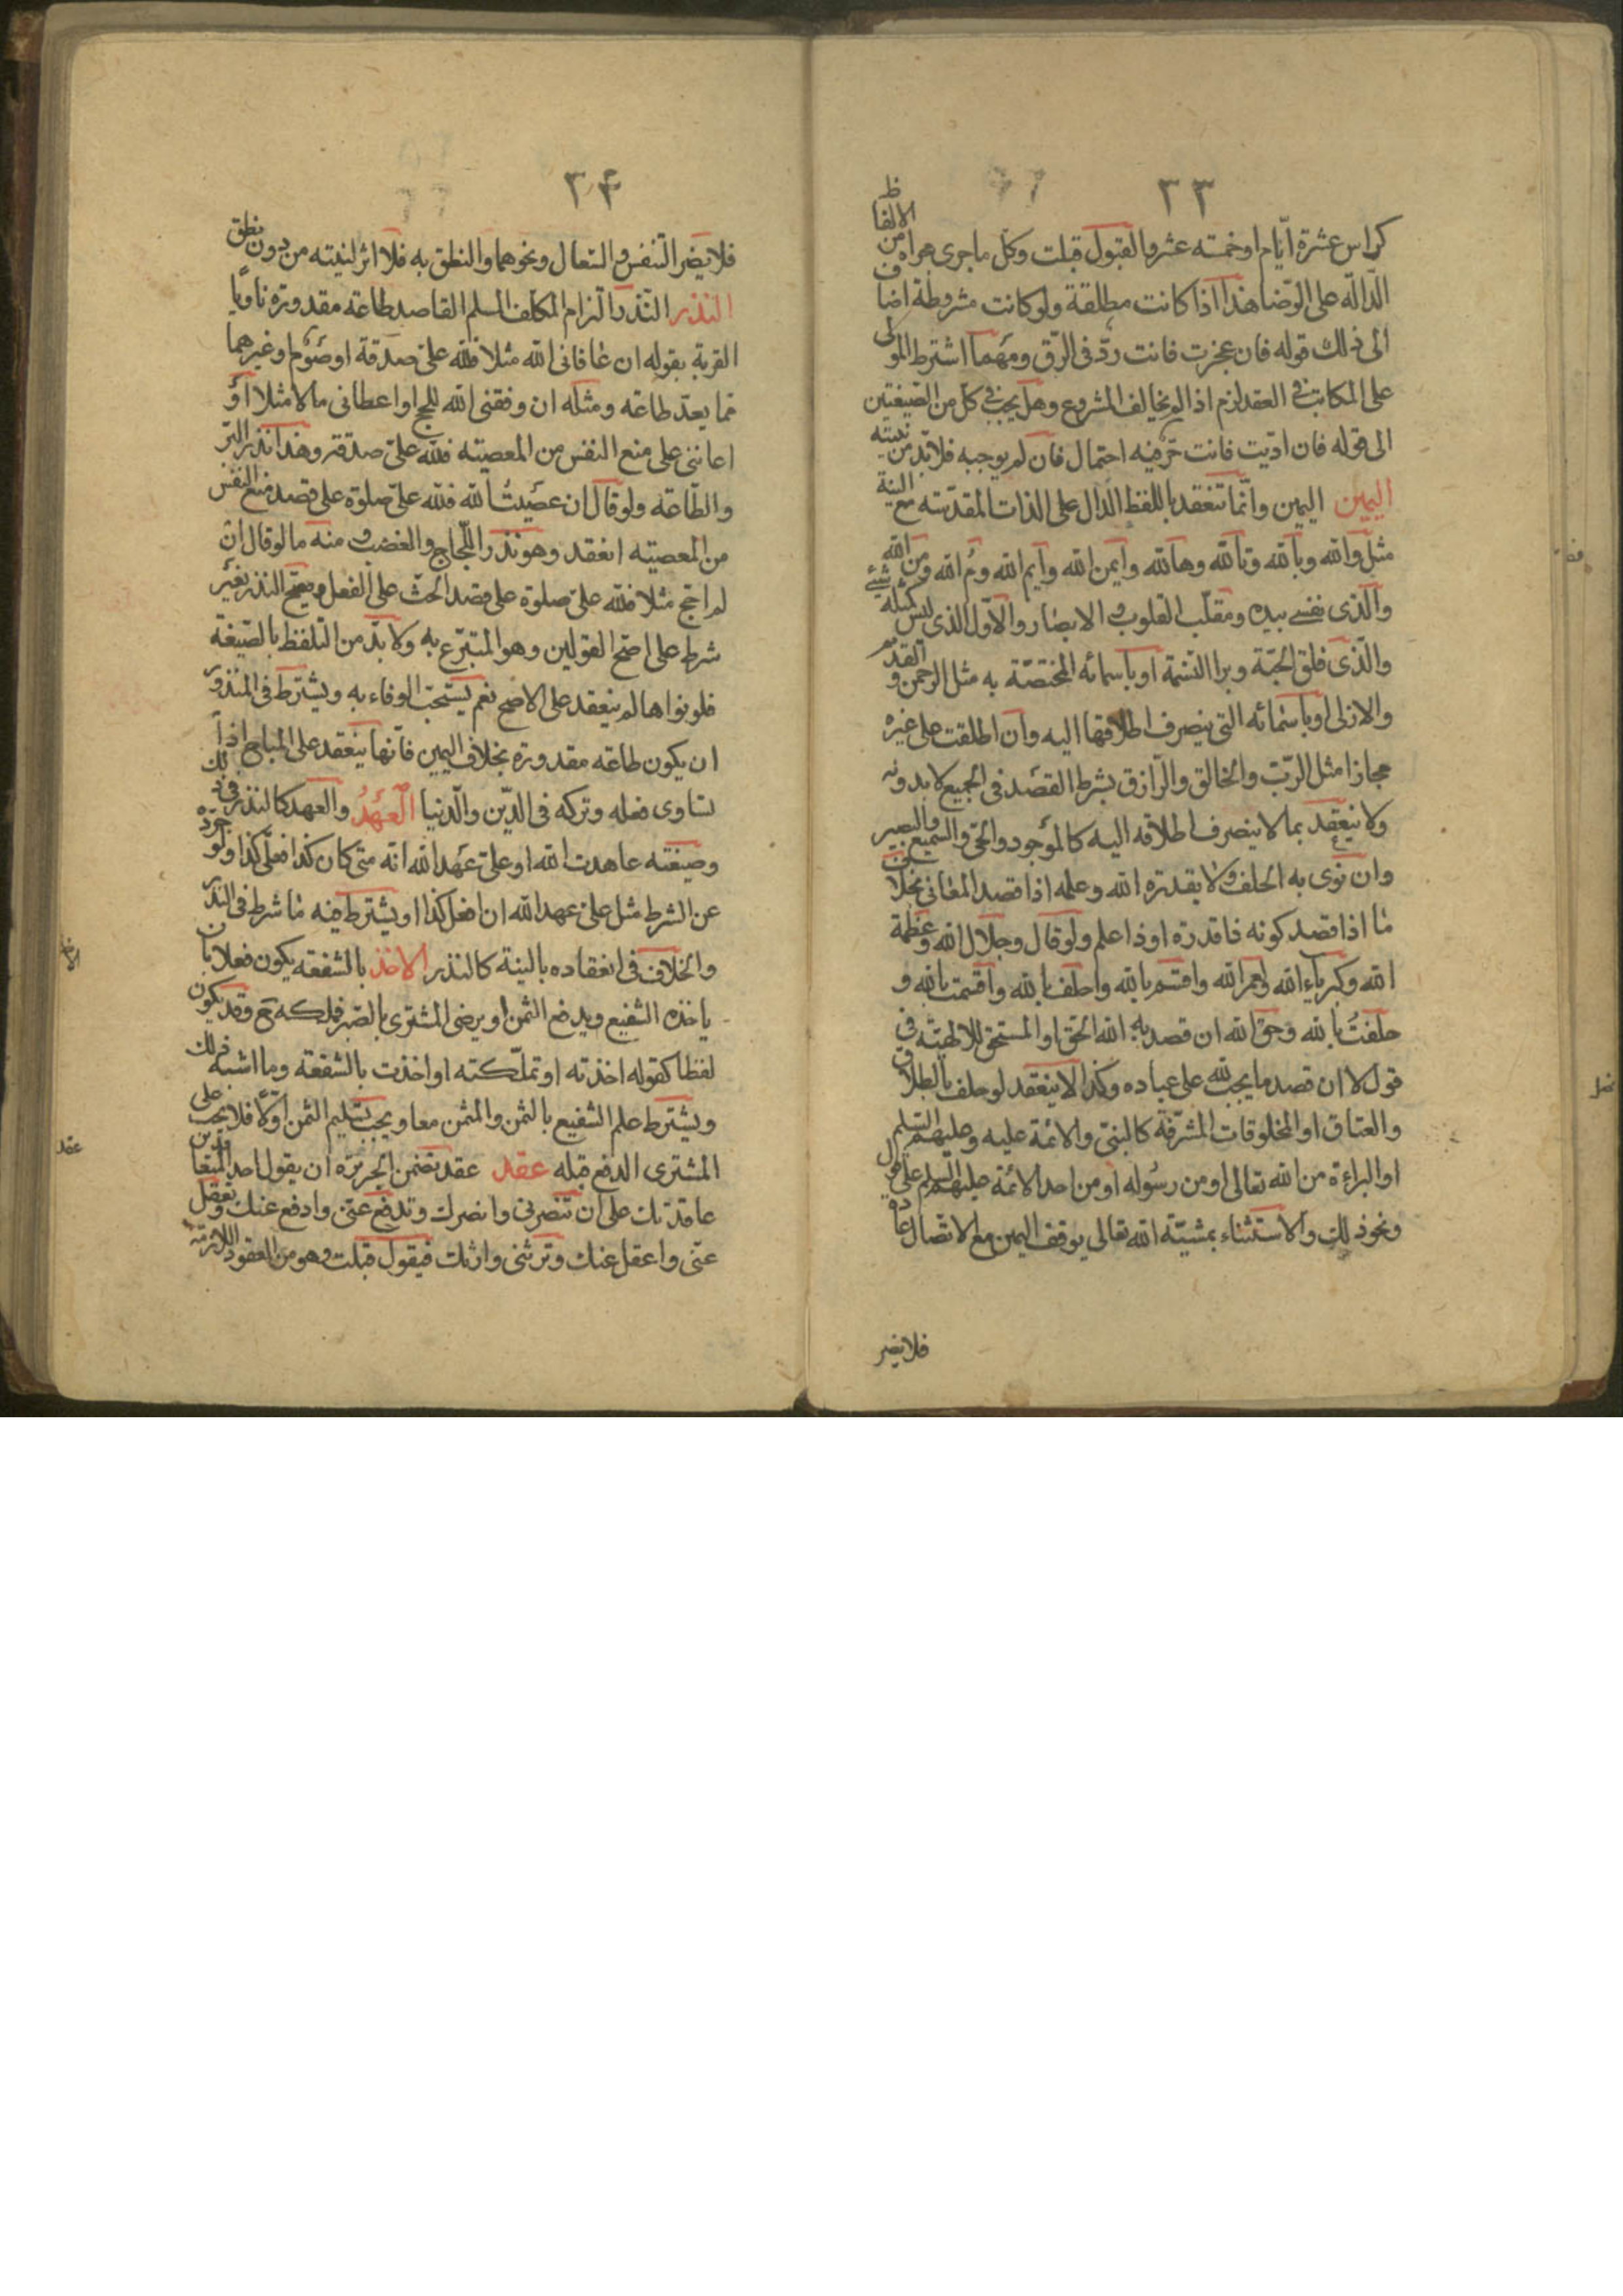 ٣٣
كراس عشرة ايام او خمسة عشر والقبول قبلت وكل ما جرى مجراه من الالفاظ
الدالة على الرضا هذا اذا كانت مطلقة ولو كانت مشروطة اضاف
الى ذلك قوله فان عجزت فانت ردّ فى الرق ومهما اشترط المولى
على المكاتب فى العقد لزم اذا لم يخالف المشروع وهل يجب فى كل من الصيغتين
الى قوله فان ادّيت فانت حرّ فيه احتمال فان لم يوجبه فلا بدّ من نيته
اليمين اليمين وانّما تنعقد باللفظ الدال على الذات المقدّسة مع النية
مثل والله وبالله وتالله وهاالله وايمن الله وايم الله ومُ الله ومن الله
والّذى نفسى بيده ومقلّب القلوب والابصار والاوّل الذى ليس كمثله شيئ
والّذى فلق الحبّة وبرا النسمة او باسمائه المختصّة به مثل الرحمن و القديم
والازلى او باسمائه التى ينصرف اطلاقها اليه وان اطلقت على غيره
مجازا مثل الربّ والخالق والرّازق بشرط القصد فى الجميع لا بدونه
ولا ينعقد بما لا ينصرف اطلاقه اليه كالموجود والحىّ والسميع والبصير
وان نوى به الحلف ولا بقدرة الله وعلمه اذا قصد المعانى بخلاف
ما اذا قصد كونه ذا قدرة او ذا علم ولو قال وجلال الله وعظمة
الله وكبرياء الله ولعمر الله واقسم بالله واحلف بالله واقسمت بالله و
حلفتُ بالله وحق الله ان قصد به الله الحق او المستحق للالهيّة فى
قول لا ان قصد ما يجب لله على عباده وكذا لا ينعقد لو حلف بالطلاق
والعتاق او المخلوقات المشرّفة كالنبىّ والائمة عليه وعليهم السلم
او البراءة من الله تعالى او من رسوله او من احد الائمة عليهم السلم على قول
ونحو ذلك والاستثناء بمشيّة الله تعالى يوقف اليمين مع الاتّصال عادة
فلا يضر
٣۴
فلا يضر التنفس والسعال ونحوهما والنطق به فلا اثر لنيته من دون نطق
النذر النّذر التزام المكلف المسلم القاصد طاعة مقدورة ناويًا
القربة بقوله ان عافانى الله مثلا فلله علىّ صدقة او صوم او غيرهما
مما يعدّ طاعة ومثله ان وفقنى الله للحج او اعطانى مالا مثلا او
اعاننى على منع النفس من المعصية فلله علىّ صدقة وهذا نذر البرّ
والطّاعة ولو قال ان عصيتُ الله فلله علىّ صلوة على قصد منع النفس
من المعصية انعقد وهو نذر اللّجاج والغضب ومنه ما لو قال ان
لم احج مثلا فلله علىّ صلوة على قصد الحثّ على الفعل ويصحّ النذر بغير
شرط على اصحّ القولين وهو المتبرّع به ولا بدّ من التلفظ بالصّيغة
فلو نواها لم ينعقد على الاصح نعم يستحبّ الوفاء به ويشترط فى المنذور
ان يكون طاعة مقدورة بخلاف اليمين فانّها ينعقد على المباح اذا
تساوى فعله وتركه فى الدّين والدّنيا العهدُ والعهد كالنذر فى ذلك
وصيغته عاهدت الله او علىّ عهد الله انه متى كان كذا فعلىّ كذا ولو جرّده
عن الشرط مثل علىّ عهد الله ان افعل كذا او يشترط فيه ما شرط فى النذر
والخلاف فى انعقاده بالنية كالنذر الاخذ بالشفعة يكون فعلا بان
ياخذه الشفيع ويدفع الثمن او يرضى المشترى بالصّبر فملكه مع وقد يكون
لفظا كقوله اخذته او تملّكته او اخذت بالشفعة وما اشبه ذلك
ويشترط علم الشفيع بالثمن والمثمن معا ويجب تسليم الثمن اوّلًا فلا يجب على
المشترى الدفع قبله عقد عقد تضمن الجريرة ان يقول احد المتعاقدين
عاقدتك على ان تنصرنى وانصرك وتدفع عنّى وادفع عنك وتعقل
عنّى واعقل عنك وترثنى وارثك فيقول قبلت وهو من العقود اللازمة
عقد